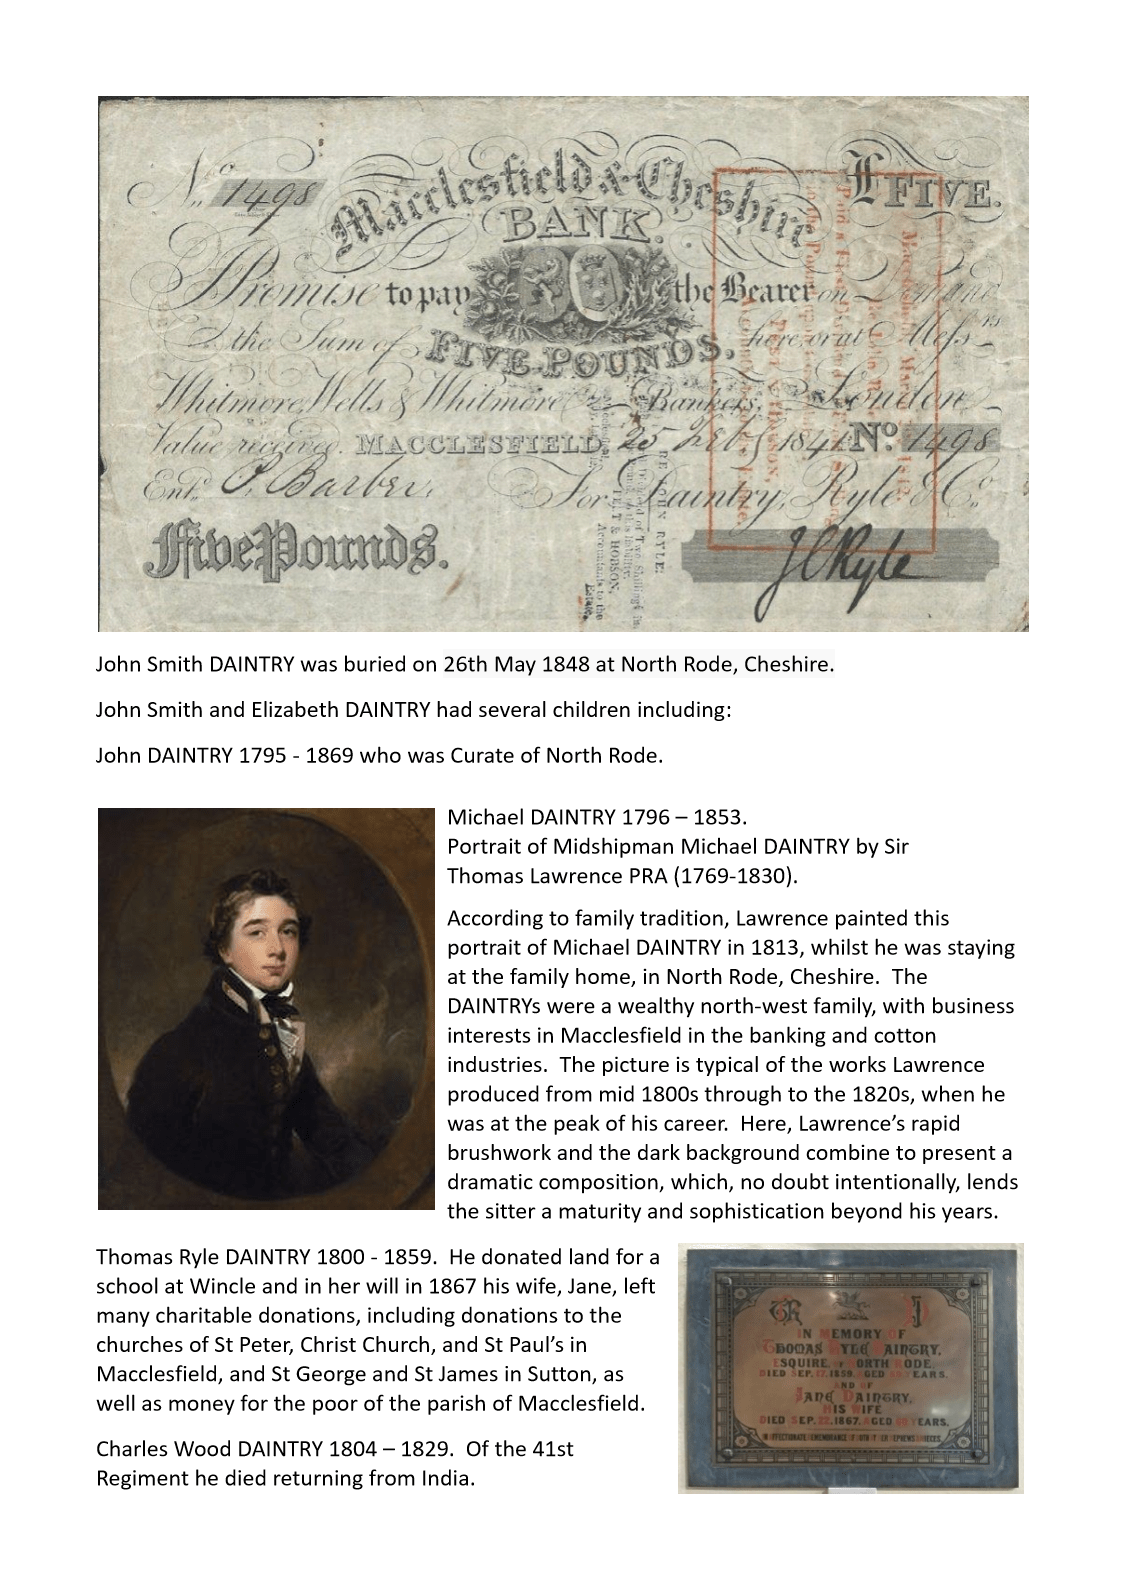 No. 1498
Macclesfield & Cheshire
£ FIVE.
BANK.
I Promise to pay the Bearer on Demand
the Sum of FIVE POUNDS. here, or at Messrs
Whitmore, Wells & Whitmore Bankers, London
Value received. MACCLESFIELD 25 Feby 1841 No 1498
Entd. P. Barber. For Daintry, Ryle & Co.
Five Pounds.
J C Ryle
RE JOHN RYLE:
Dividend of Two Shillings in
HOBSON,
Accountants to the
Estate.
John Smith DAINTRY was buried on 26th May 1848 at North Rode, Cheshire.
John Smith and Elizabeth DAINTRY had several children including:
John DAINTRY 1795 - 1869 who was Curate of North Rode.
Michael DAINTRY 1796 – 1853.
Portrait of Midshipman Michael DAINTRY by Sir
Thomas Lawrence PRA (1769-1830).
According to family tradition, Lawrence painted this
portrait of Michael DAINTRY in 1813, whilst he was staying
at the family home, in North Rode, Cheshire.  The
DAINTRYs were a wealthy north-west family, with business
interests in Macclesfield in the banking and cotton
industries.  The picture is typical of the works Lawrence
produced from mid 1800s through to the 1820s, when he
was at the peak of his career.  Here, Lawrence’s rapid
brushwork and the dark background combine to present a
dramatic composition, which, no doubt intentionally, lends
the sitter a maturity and sophistication beyond his years.
Thomas Ryle DAINTRY 1800 - 1859.  He donated land for a
school at Wincle and in her will in 1867 his wife, Jane, left
many charitable donations, including donations to the
churches of St Peter, Christ Church, and St Paul’s in
Macclesfield, and St George and St James in Sutton, as
well as money for the poor of the parish of Macclesfield.
Charles Wood DAINTRY 1804 – 1829.  Of the 41st
Regiment he died returning from India.
IN MEMORY OF
THOMAS RYLE DAINTRY,
ESQUIRE, OF NORTH RODE.
DIED SEP. 17. 1859. AGED YEARS.
AND OF
JANE DAINTRY,
HIS WIFE
DIED SEP. 22. 1867. AGED YEARS.